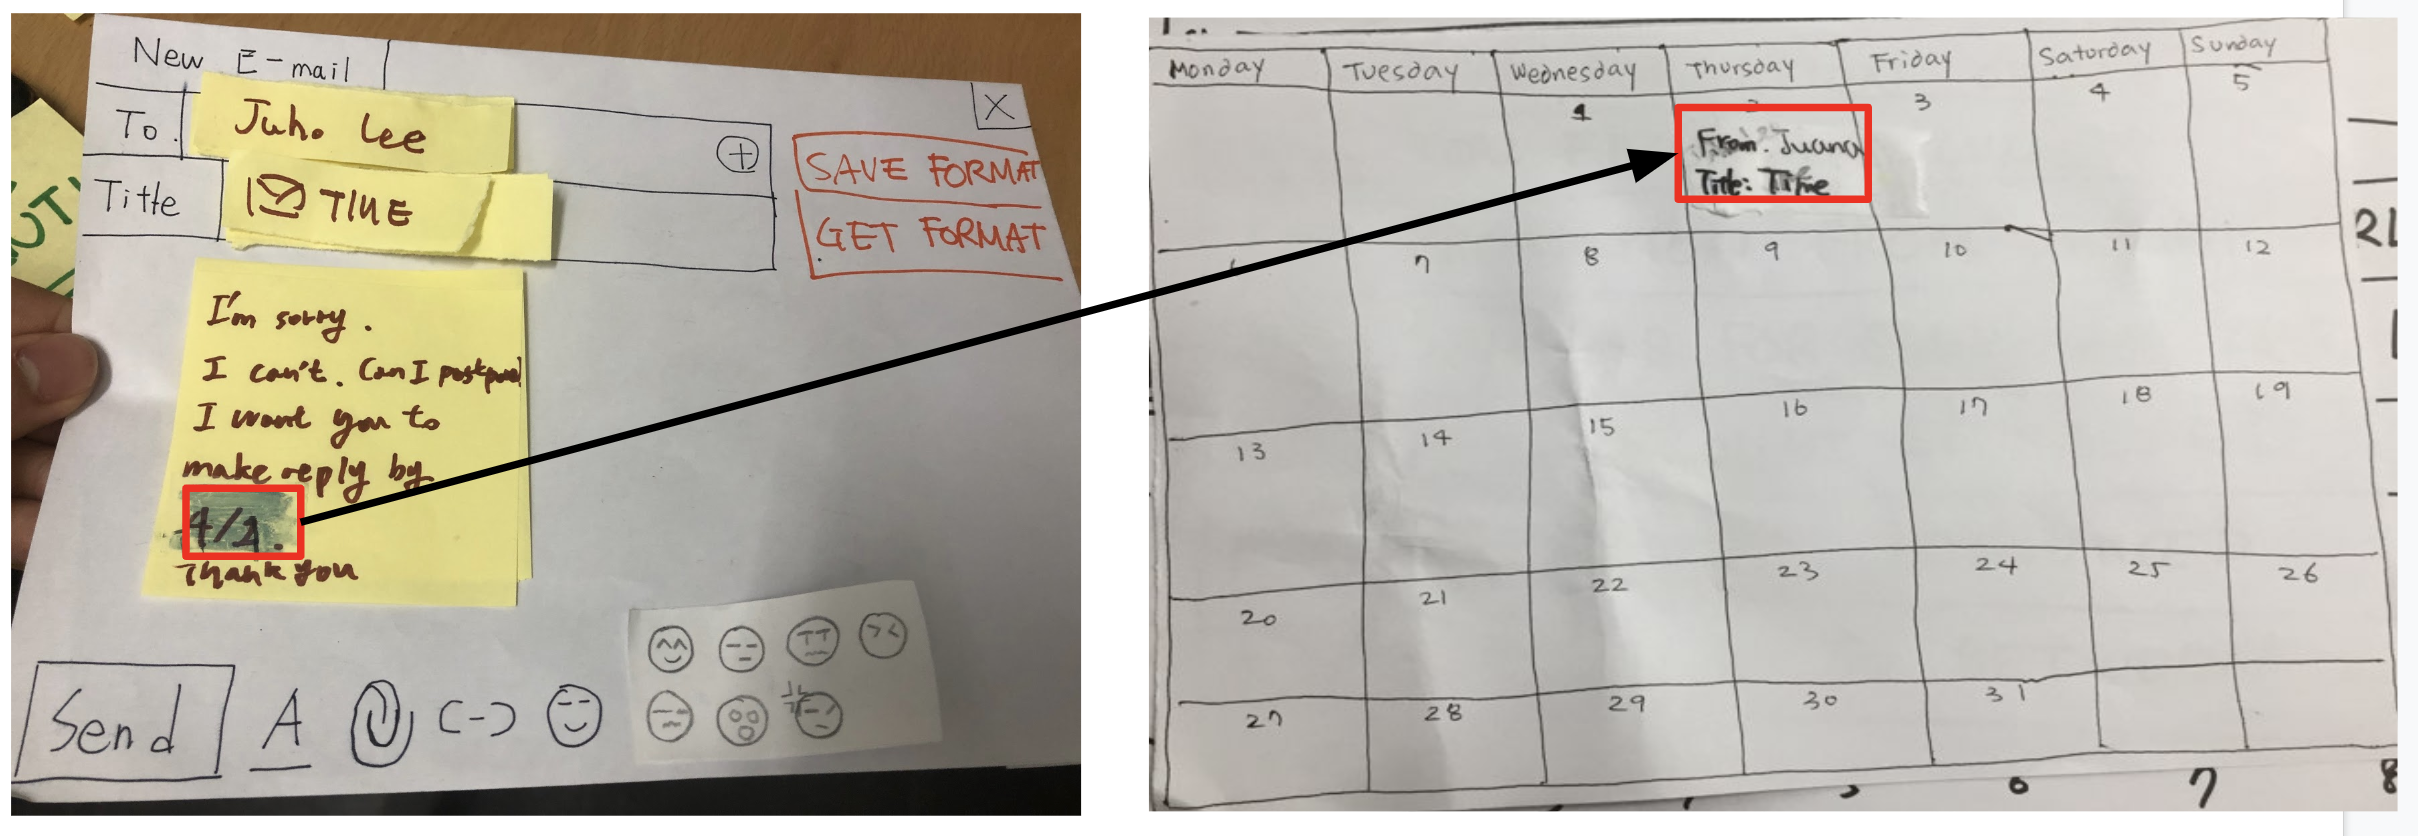 New E-mail
X
To.
Juho Lee
Title
TITLE
SAVE FORMAT
GET FORMAT
I'm sorry.
I can't. Can I
I want you to
make reply by
4/2.
Thank you
Send A
Monday Tuesday Wednesday Thursday Friday Saturday Sunday
1 2 3 4 5
From: Juana
Title: Title
7 8 9 10 11 12
13 14 15 16 17 18 19
20 21 22 23 24 25 26
27 28 29 30 31
7 8